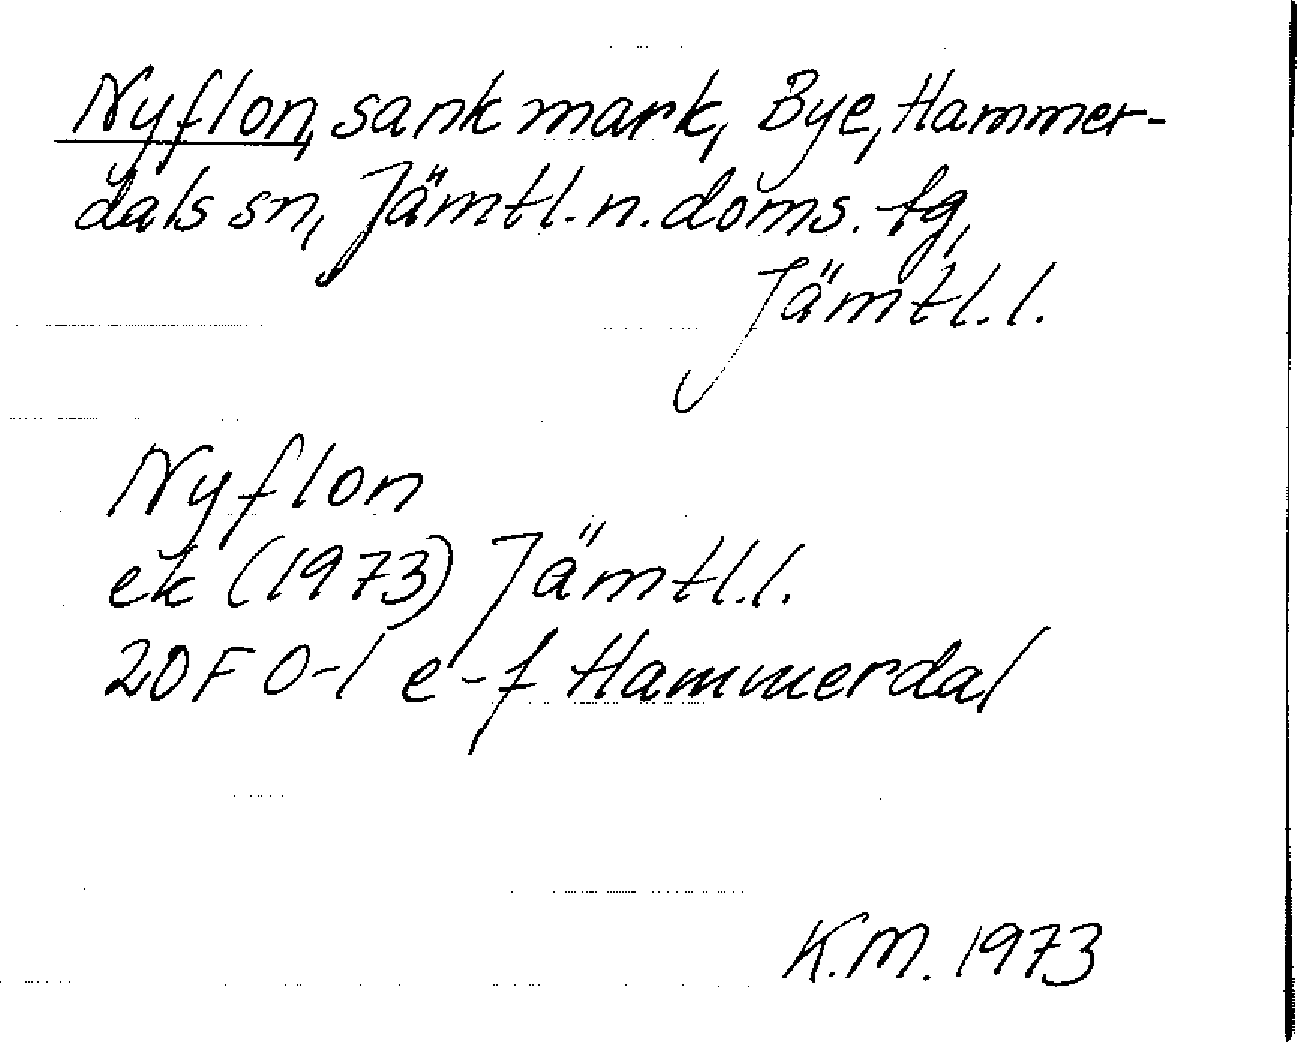 Nyflon, sank mark, Bye, Hammer-
dals sn, Jämtl. n. doms. tg,
Jämtl. l.
Nyflon
ek (1973) Jämtl. l.
20F 0-1 e-f Hammerdal
K.M. 1973